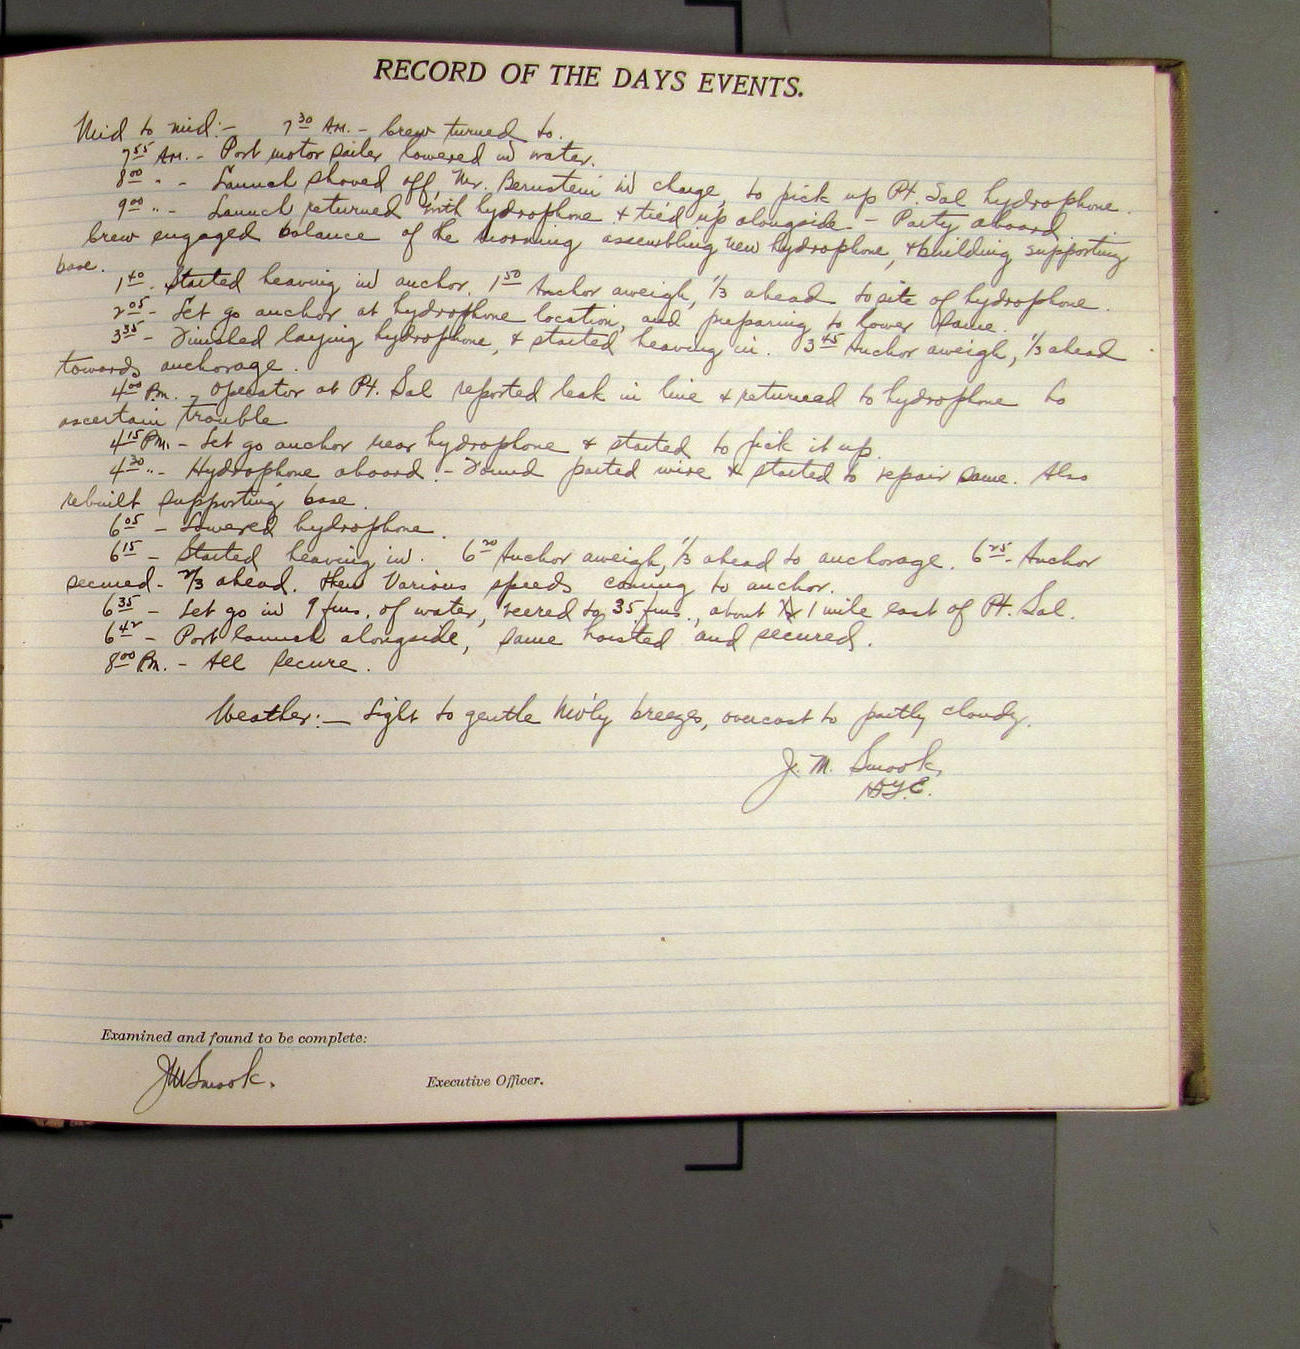 RECORD OF THE DAYS EVENTS.
Mid to mid:- 7 30 AM. - Crew turned to.
7 55 AM. - Port motor sailer lowered in water.
8 00 " - Launch shoved off, Mr. Bernstein in charge, to pick up Pt. Sal hydrophone.
9 00 " - Launch returned with hydrophone & tied up alongside. - Party aboard.
Crew engaged balance of the morning assembling new hydrophone, & building supporting
base.
1 40. Started heaving in anchor. 1 50 Anchor aweigh, 1/3 ahead to site of hydrophone.
2 05 - Let go anchor at hydrophone location, and preparing to lower same.
3 35 - Finished laying hydrophone, & started heaving in. 3 45 Anchor aweigh, 1/3 ahead
towards anchorage.
4 00 Pm. - Operator at Pt. Sal reported leak in line & returned to hydrophone to
ascertain trouble
4 15 Pm. - Let go anchor near hydrophone & started to pick it up.
4 30 " - Hydrophone aboard. - Found parted wire & started to repair same. Also
rebuilt supporting base.
6 05 - Lowered hydrophone.
6 15 - Started heaving in. 6 20 Anchor aweigh, 1/3 ahead to anchorage. 6 25 - Anchor
secured - 2/3 ahead. then Various speeds coming to anchor.
6 35 - Let go in 9 fms. of water, veered to 35 fms., about 1 mile east of Pt. Sal.
6 42 - Port launch alongside, same hoisted and secured.
8 00 Pm. - All secure.
Weather:- Light to gentle NW'ly breezes, overcast to partly cloudy.
J. M. Smook,
H.&G.E.
Examined and found to be complete:
JMSmook.
Executive Officer.